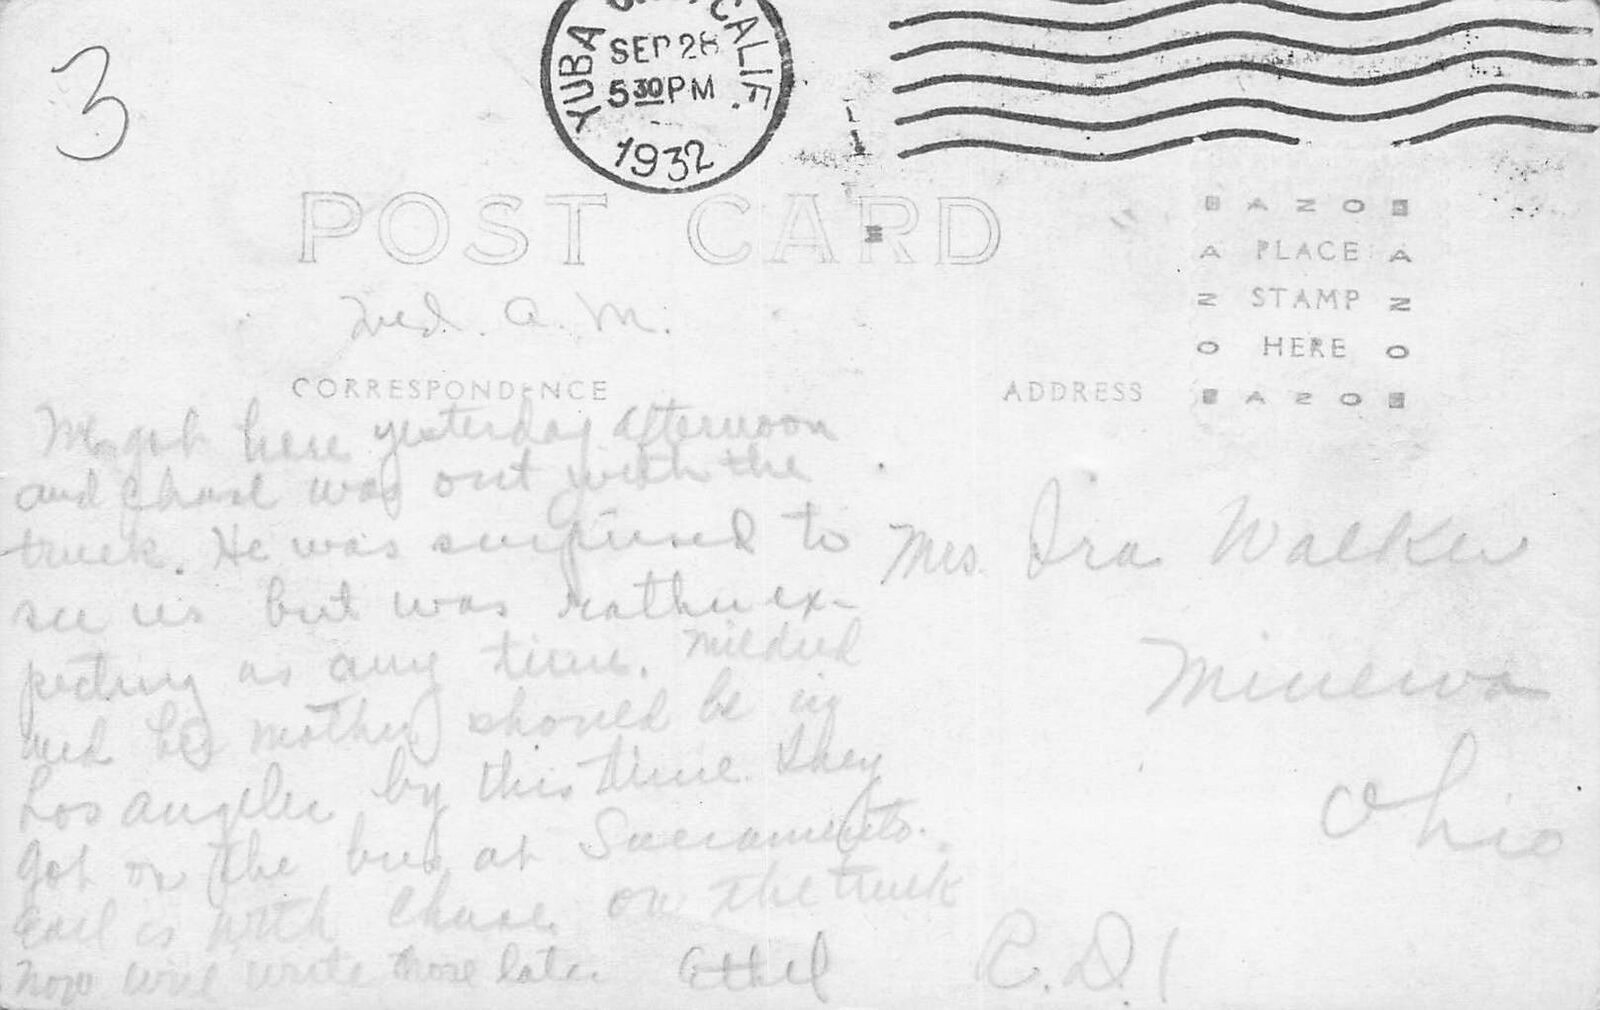 3
YUBA CITY, CALIF.
SEP 28
5 30 PM
1932
POST CARD
AZO
PLACE
STAMP
HERE
AZO
Wed. A.M.
CORRESPONDENCE
ADDRESS
We got here yesterday afternoon
and Chase was out with the
truck. He was surprised to
see us but was rather ex-
pecting us any time. Mildred
and his mother should be in
Los Angeles by this time. They
got on the bus at Sacramento.
Earl is with Chase on the truck
now will write more later Ethel
Mrs Ira Walker
Minerva
Ohio
R.D. 1